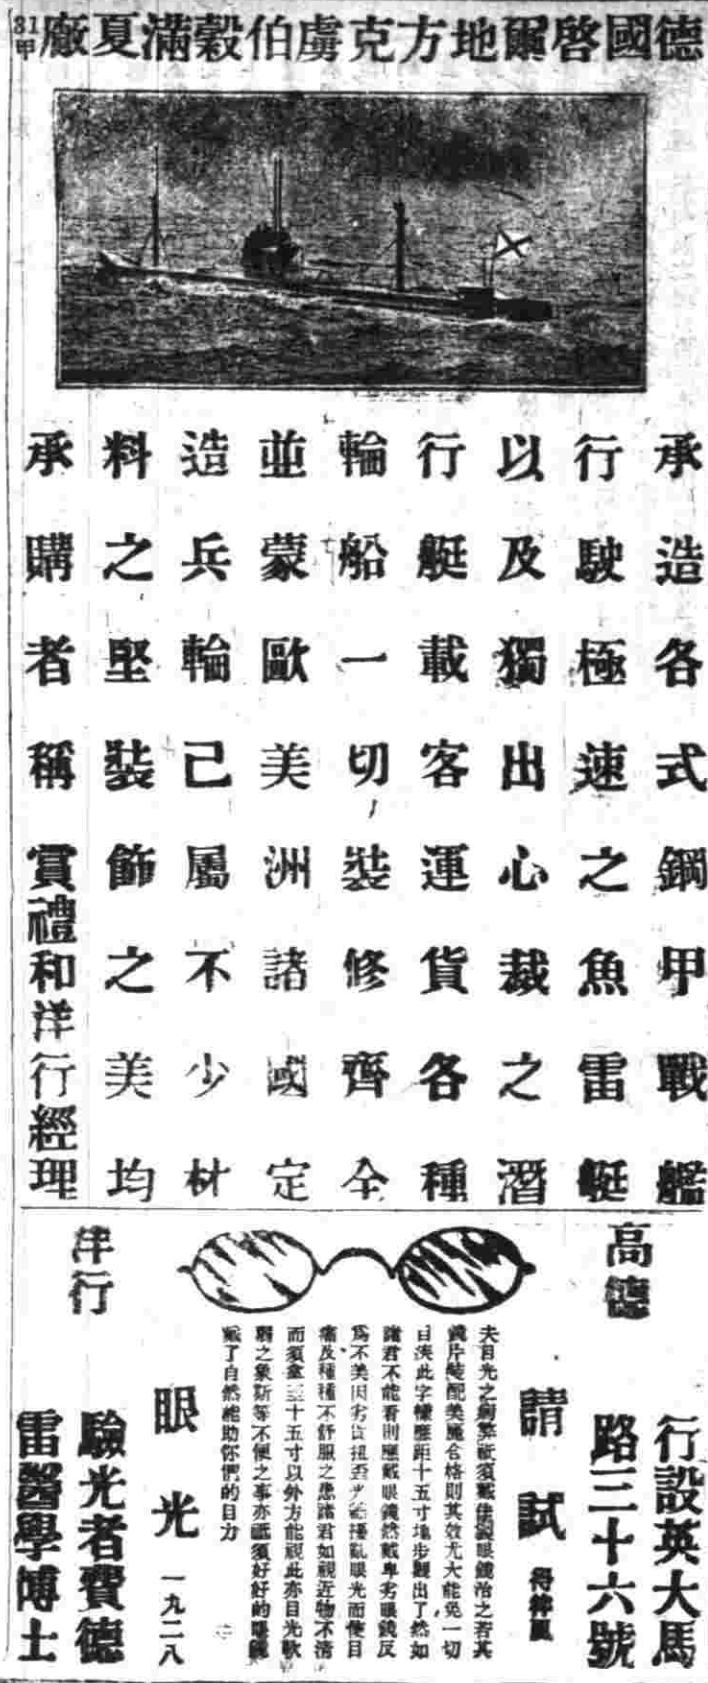 德國啓爾地方克虜伯穀滿夏廠
31甲
承造各式鋼甲戰艦
行駛極速之魚雷艇
以及獨出心裁之潛
行艇載客運貨各種
輪船一切裝修齊全
並蒙歐美洲諸國定
造兵輪己屬不少材
料之堅裝飾之美均
承購者稱賞禮和洋行經理
高德
洋行
行設英大馬
路三十六號
請試
得律風
夫目光之弊祗須戴佳製眼鏡治之若其
鏡片裝配美麗合格則其效尤大能免一切
目疾此字樣應距十五寸地步觀出了然如
諸君不能看則應戴眼鏡然戴卑劣眼鏡反
爲不美因劣貨扭歪光線擾亂眼光而使目
痛及種種不舒服之患諸君如視近物不清
而須拿三十五寸以外方能視此亦目光軟
弱之象斯等不便之事亦祗須好好的眼鏡
戴了自然能助你們的目力
眼光
一九二八
驗光者費德
雷醫學博士